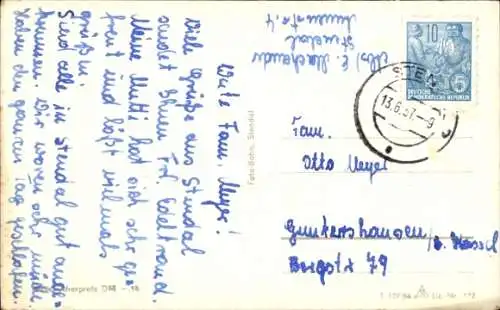 Liebe Fam. Meyer!
Viele Grüße aus Stendal
sendet Ihnen Frl. Edeltraud.
Meine Mutti hat sich sehr ge-
freut und läßt vielmals
grüßen.
Sind alle in Stendal gut ange-
kommen. Wir waren sehr müde
haben den ganzen Tag geschlafen.
Abs. E.
Stendal
Foto-Bohn, Stendal
10
5
DEUTSCHE
DEMOKRATISCHE REPUBLIK
STEN
13.6.57.-9
Fam.
Otto Meyer
Guntershausen
b. Kassel
Bergstr 79
Verbraucherpreis DM -.15